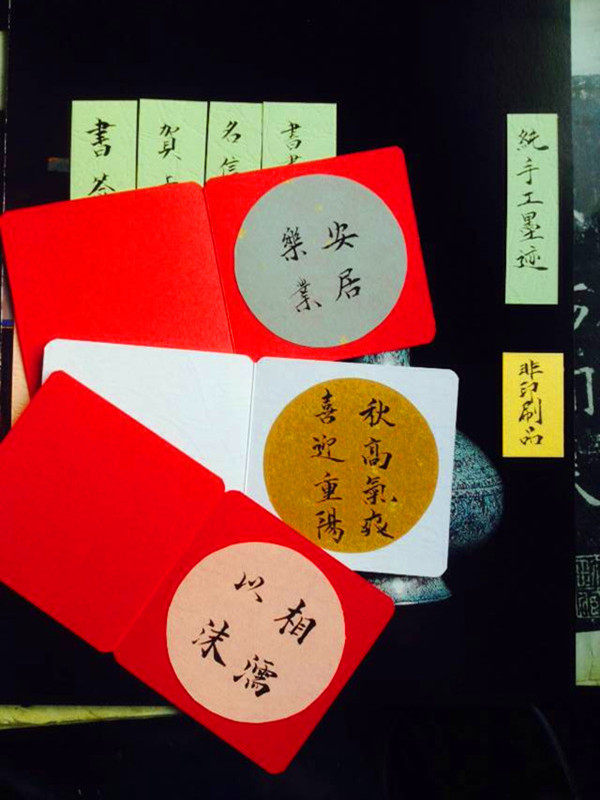 書
賀
名信
書
純手工墨迹
非印刷品
安居
樂業
秋高氣爽
喜迎重陽
相濡
以沫